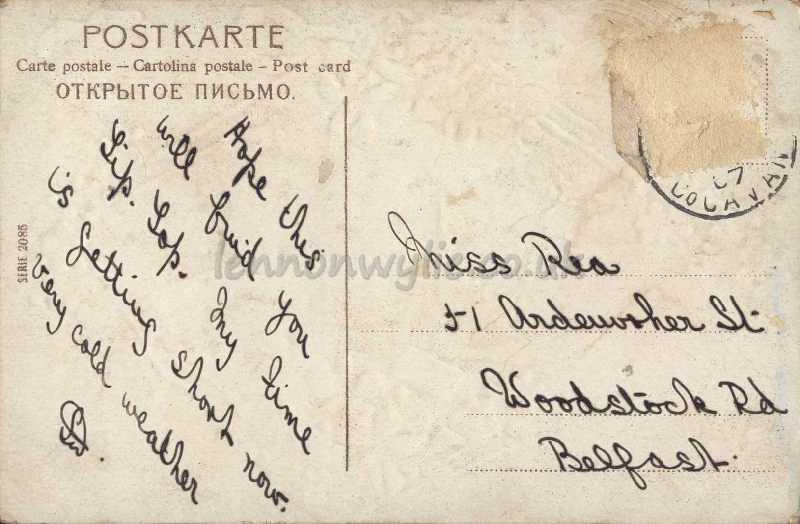 POSTKARTE
Carte postale — Cartolina postale — Post card
ОТКРЫТОЕ ПИСЬМО.
SERIE 2085
Hope this
will find you
Tip. Top. My time
is getting short now.
very cold weather
07
COCAVAN
lennonwylie.co.uk
Miss Rea
51 Ardenvoher St
Woodstock Rd
Belfast.